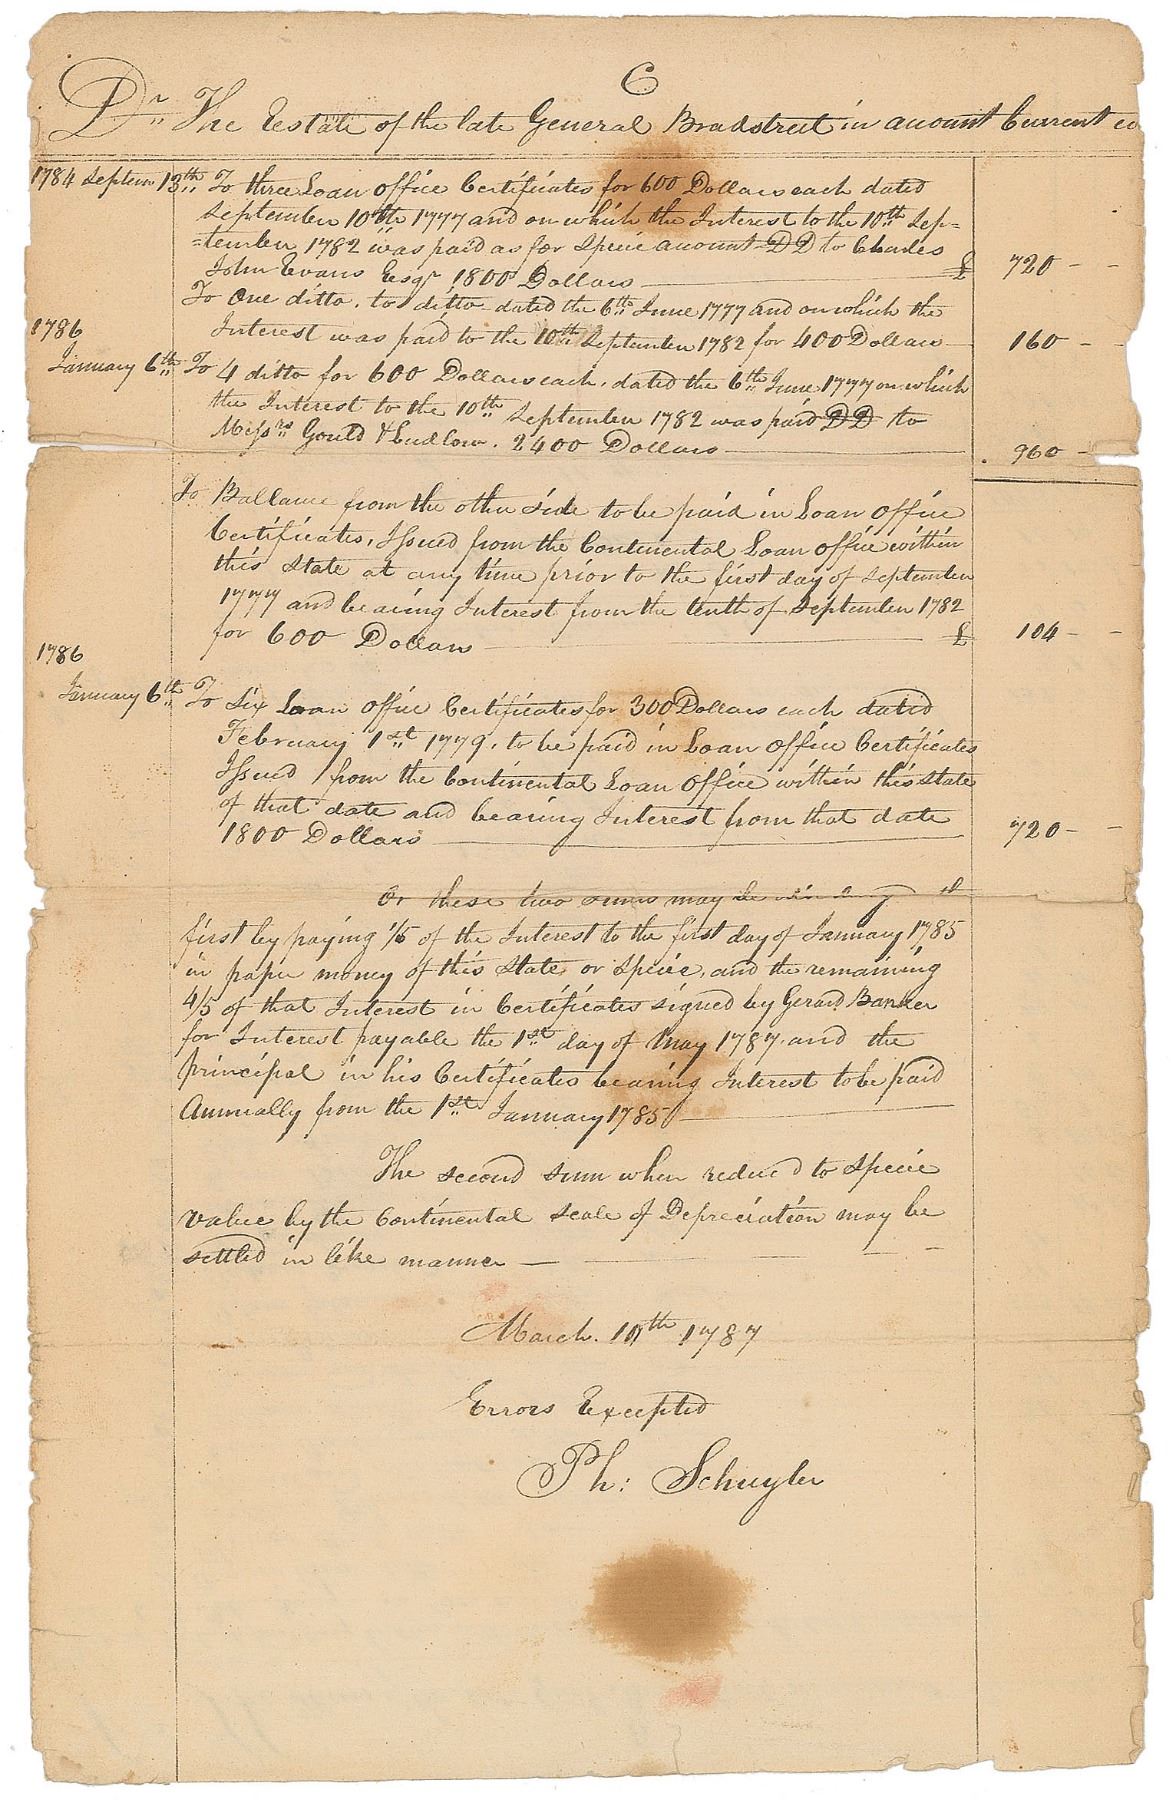 C
Dr. The Estate of the late General Bradstreet in account Current co
1784 Septem 13th To three Loan Office Certificates for 600 Dollars each dated
September 10th 1777 and on which the Interest to the 10th Sep-
-tember 1782 was paid as for Specie account DD to Charles
John Evans Esqr 1800 Dollars £ 720 - -
To One ditto. to ditto dated the 6th June 1777 and on which the
Interest was paid to the 10th September 1782 for 400 Dollars 160 - -
1786
January 6th To 4 ditto for 600 Dollars each, dated the 6th June 1777 on which
the Interest to the 10th September 1782 was paid DD to
Messrs Gould & Ludlow. 2400 Dollars 960 -
To Ballance from the other side to be paid in Loan Office
Certificates, Issued from the Continental Loan Office within
this State at any time prior to the first day of September
1777 and bearing Interest from the tenth of September 1782
for 600 Dollars £ 104 - -
1786
January 6th To Six Loan Office Certificates for 300 Dollars each dated
February 1st 1779, to be paid in Loan Office Certificates
Issued from the Continental Loan Office within this State
of that date and bearing Interest from that date
1800 Dollars 720 - -
Or these two sums may be
first by paying 1/5 of the Interest to the first day of January 1785
in paper money of this State or Specie, and the remaining
4/5 of that Interest in Certificates signed by Gerard Banker
for Interest payable the 1st day of May 1787 and the
principal in his Certificates bearing Interest to be paid
Annually from the 1st January 1785
The second sum when reduced to Specie
value by the Continental scale of Depreciation may be
settled in like manner
March. 10th 1787
Errors Excepted
Ph: Schuyler